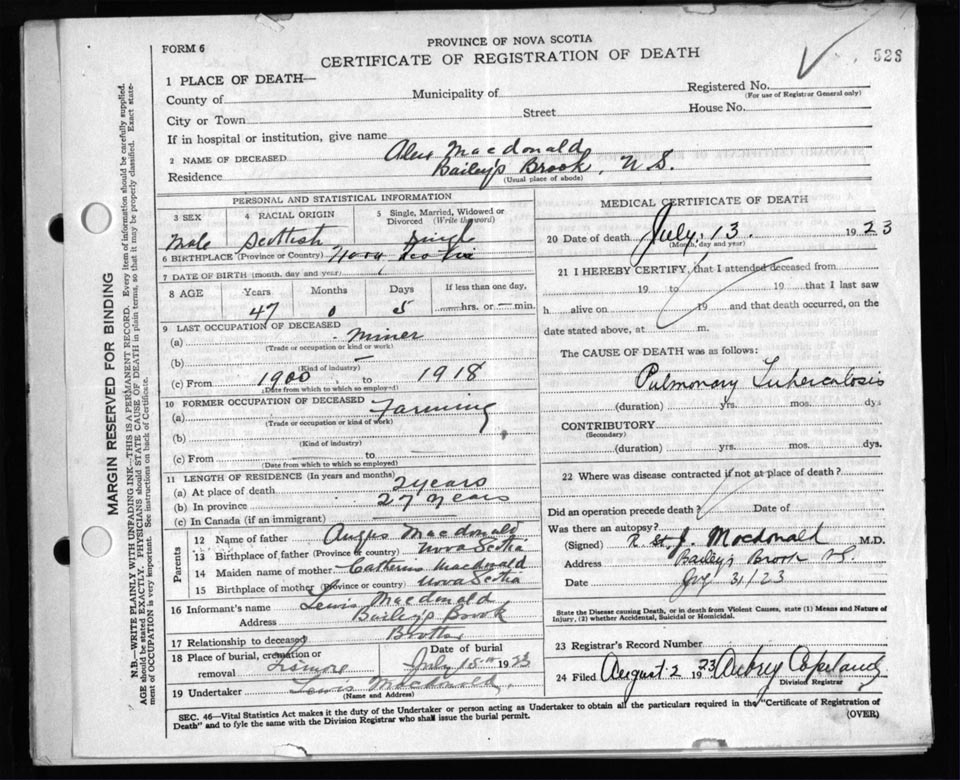 FORM 6
PROVINCE OF NOVA SCOTIA
CERTIFICATE OF REGISTRATION OF DEATH
528
1 PLACE OF DEATH—
County of
Municipality of
Registered No.
(For use of Registrar General only)
City or Town
Street
House No.
If in hospital or institution, give name
2 NAME OF DECEASED Alex Macdonald
Residence Bailey's Brook, N S.
(Usual place of abode)
PERSONAL AND STATISTICAL INFORMATION
3 SEX
4 RACIAL ORIGIN
5 Single, Married, Widowed or Divorced (Write the word)
Male Scottish Single
6 BIRTHPLACE (Province or Country) Nova Scotia
7 DATE OF BIRTH (month, day and year)
8 AGE Years Months Days If less than one day,
47 0 5 hrs. or — min.
9 LAST OCCUPATION OF DECEASED
(a) Miner
(Trade or occupation or kind or work)
(b) —
(Kind of industry)
(c) From 1900 to 1918
(Date from which to which so employed)
10 FORMER OCCUPATION OF DECEASED
(a) Farming
(Trade or occupation or kind of work)
(b)
(Kind of industry)
(c) From — to —
(Date from which to which so employed)
11 LENGTH OF RESIDENCE (In years and months)
(a) At place of death 2 years
(b) In province 27 years
(c) In Canada (if an immigrant) —
Parents
12 Name of father Angus Macdonald
13 Birthplace of father (Province or country) Nova Scotia
14 Maiden name of mother Catherine Macdonald
15 Birthplace of mother (Province or country) Nova Scotia
16 Informant's name Lewis Macdonald
Address Bailey's Brook
17 Relationship to deceased Brother
18 Place of burial, cremation or removal Lismore
Date of burial July 15th 1923
19 Undertaker Lewis Macdonald
(Name and Address)
MEDICAL CERTIFICATE OF DEATH
20 Date of death July, 13. 1923
(Month, day and year)
21 I HEREBY CERTIFY, that I attended deceased from
19 to 19 that I last saw
h alive on 19 and that death occurred, on the
date stated above, at m.
The CAUSE OF DEATH was as follows:
Pulmonary Tuberculosis
(duration) yrs. mos. dys
CONTRIBUTORY
(Secondary)
(duration) yrs. mos. dys.
22 Where was disease contracted if not at place of death?
Did an operation precede death? Date of
Was there an autopsy?
(Signed) R. St. J. Macdonald M.D.
Address Bailey's Brook NS.
Date 31/23
State the Disease causing Death, or in death from Violent Causes, state (1) Means and Nature of
Injury, (2) whether Accidental, Suicidal or Homicidal.
23 Registrar's Record Number
24 Filed August 2 1923 Aubrey Copeland
Division Registrar
SEC. 46—Vital Statistics Act makes it the duty of the Undertaker or person acting as Undertaker to obtain all the particulars required in the "Certificate of Registration of
Death" and to fyle the same with the Division Registrar who shall issue the burial permit.
(OVER)
MARGIN RESERVED FOR BINDING
N.B.—WRITE PLAINLY WITH UNFADING INK—THIS IS A PERMANENT RECORD. Every item of information should be carefully supplied.
AGE should be stated EXACTLY. PHYSICIANS should STATE CAUSE OF DEATH in plain terms, so that it may be properly classified. Exact statement
of OCCUPATION is very important. See instructions on back of Certificate.